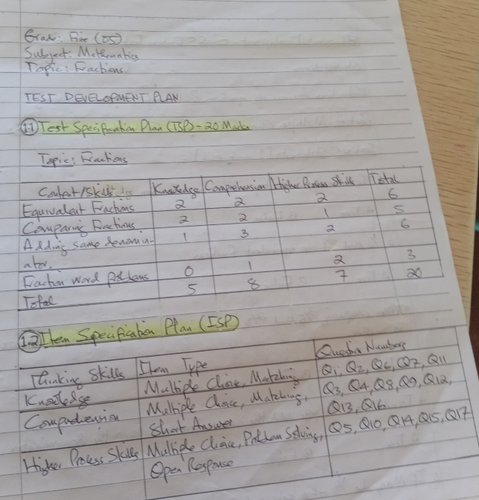 Grade: Five (05)
Subject: Mathematics
Topic: Fractions
TEST DEVELOPMENT PLAN
1.1 Test Specification Plan (TSP) - 20 Marks
Topic: Fractions
Content/Skills Knowledge Comprehension Higher Process Skills Total
Equivalent Fractions 2 2 2 6
Comparing Fractions 2 2 1 5
Adding same denomin- 1 3 2 6
ator.
Fraction word problems 0 1 2 3
Total 5 8 7 20
1.2 Item Specification Plan (ISP)
Thinking Skills Item Type Question Numbers
Knowledge Multiple Choice, Matching Q1, Q2, Q6, Q7, Q11
Comprehension Multiple Choice, Matching, Q3, Q4, Q8, Q9, Q12,
Short Answer Q13, Q16
Higher Process Skills Multiple Choice, Problem Solving, Q5, Q10, Q14, Q15, Q17
Open Response